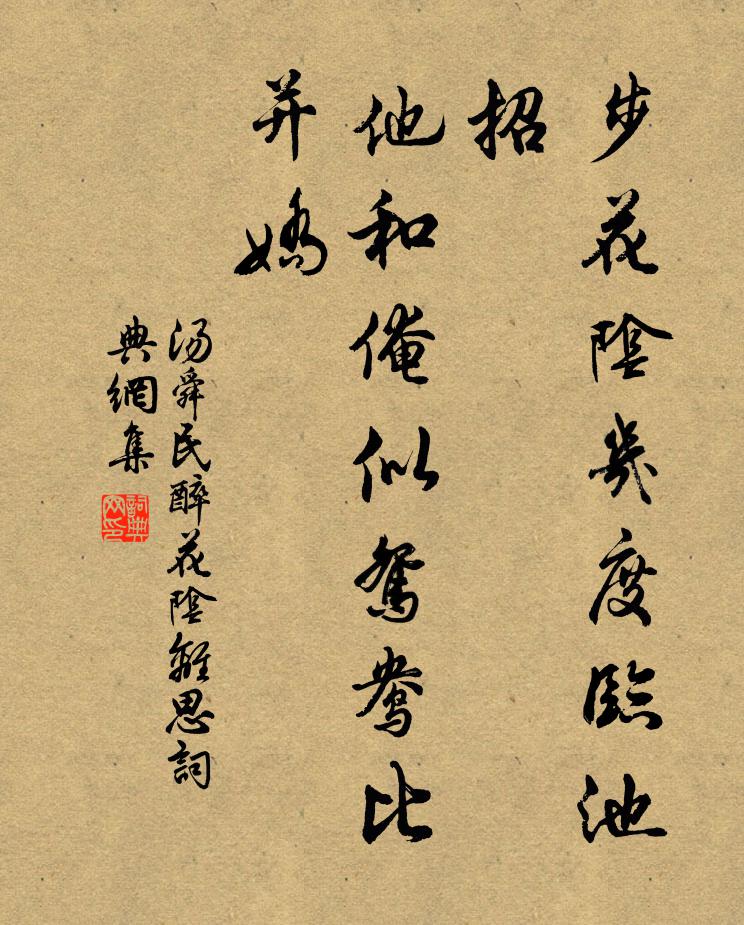 步花陰幾度臨池
招
他和俺似鴛鴦比
并嬌
湯舜民醉花陰離思詞
典網集
詞典
网印